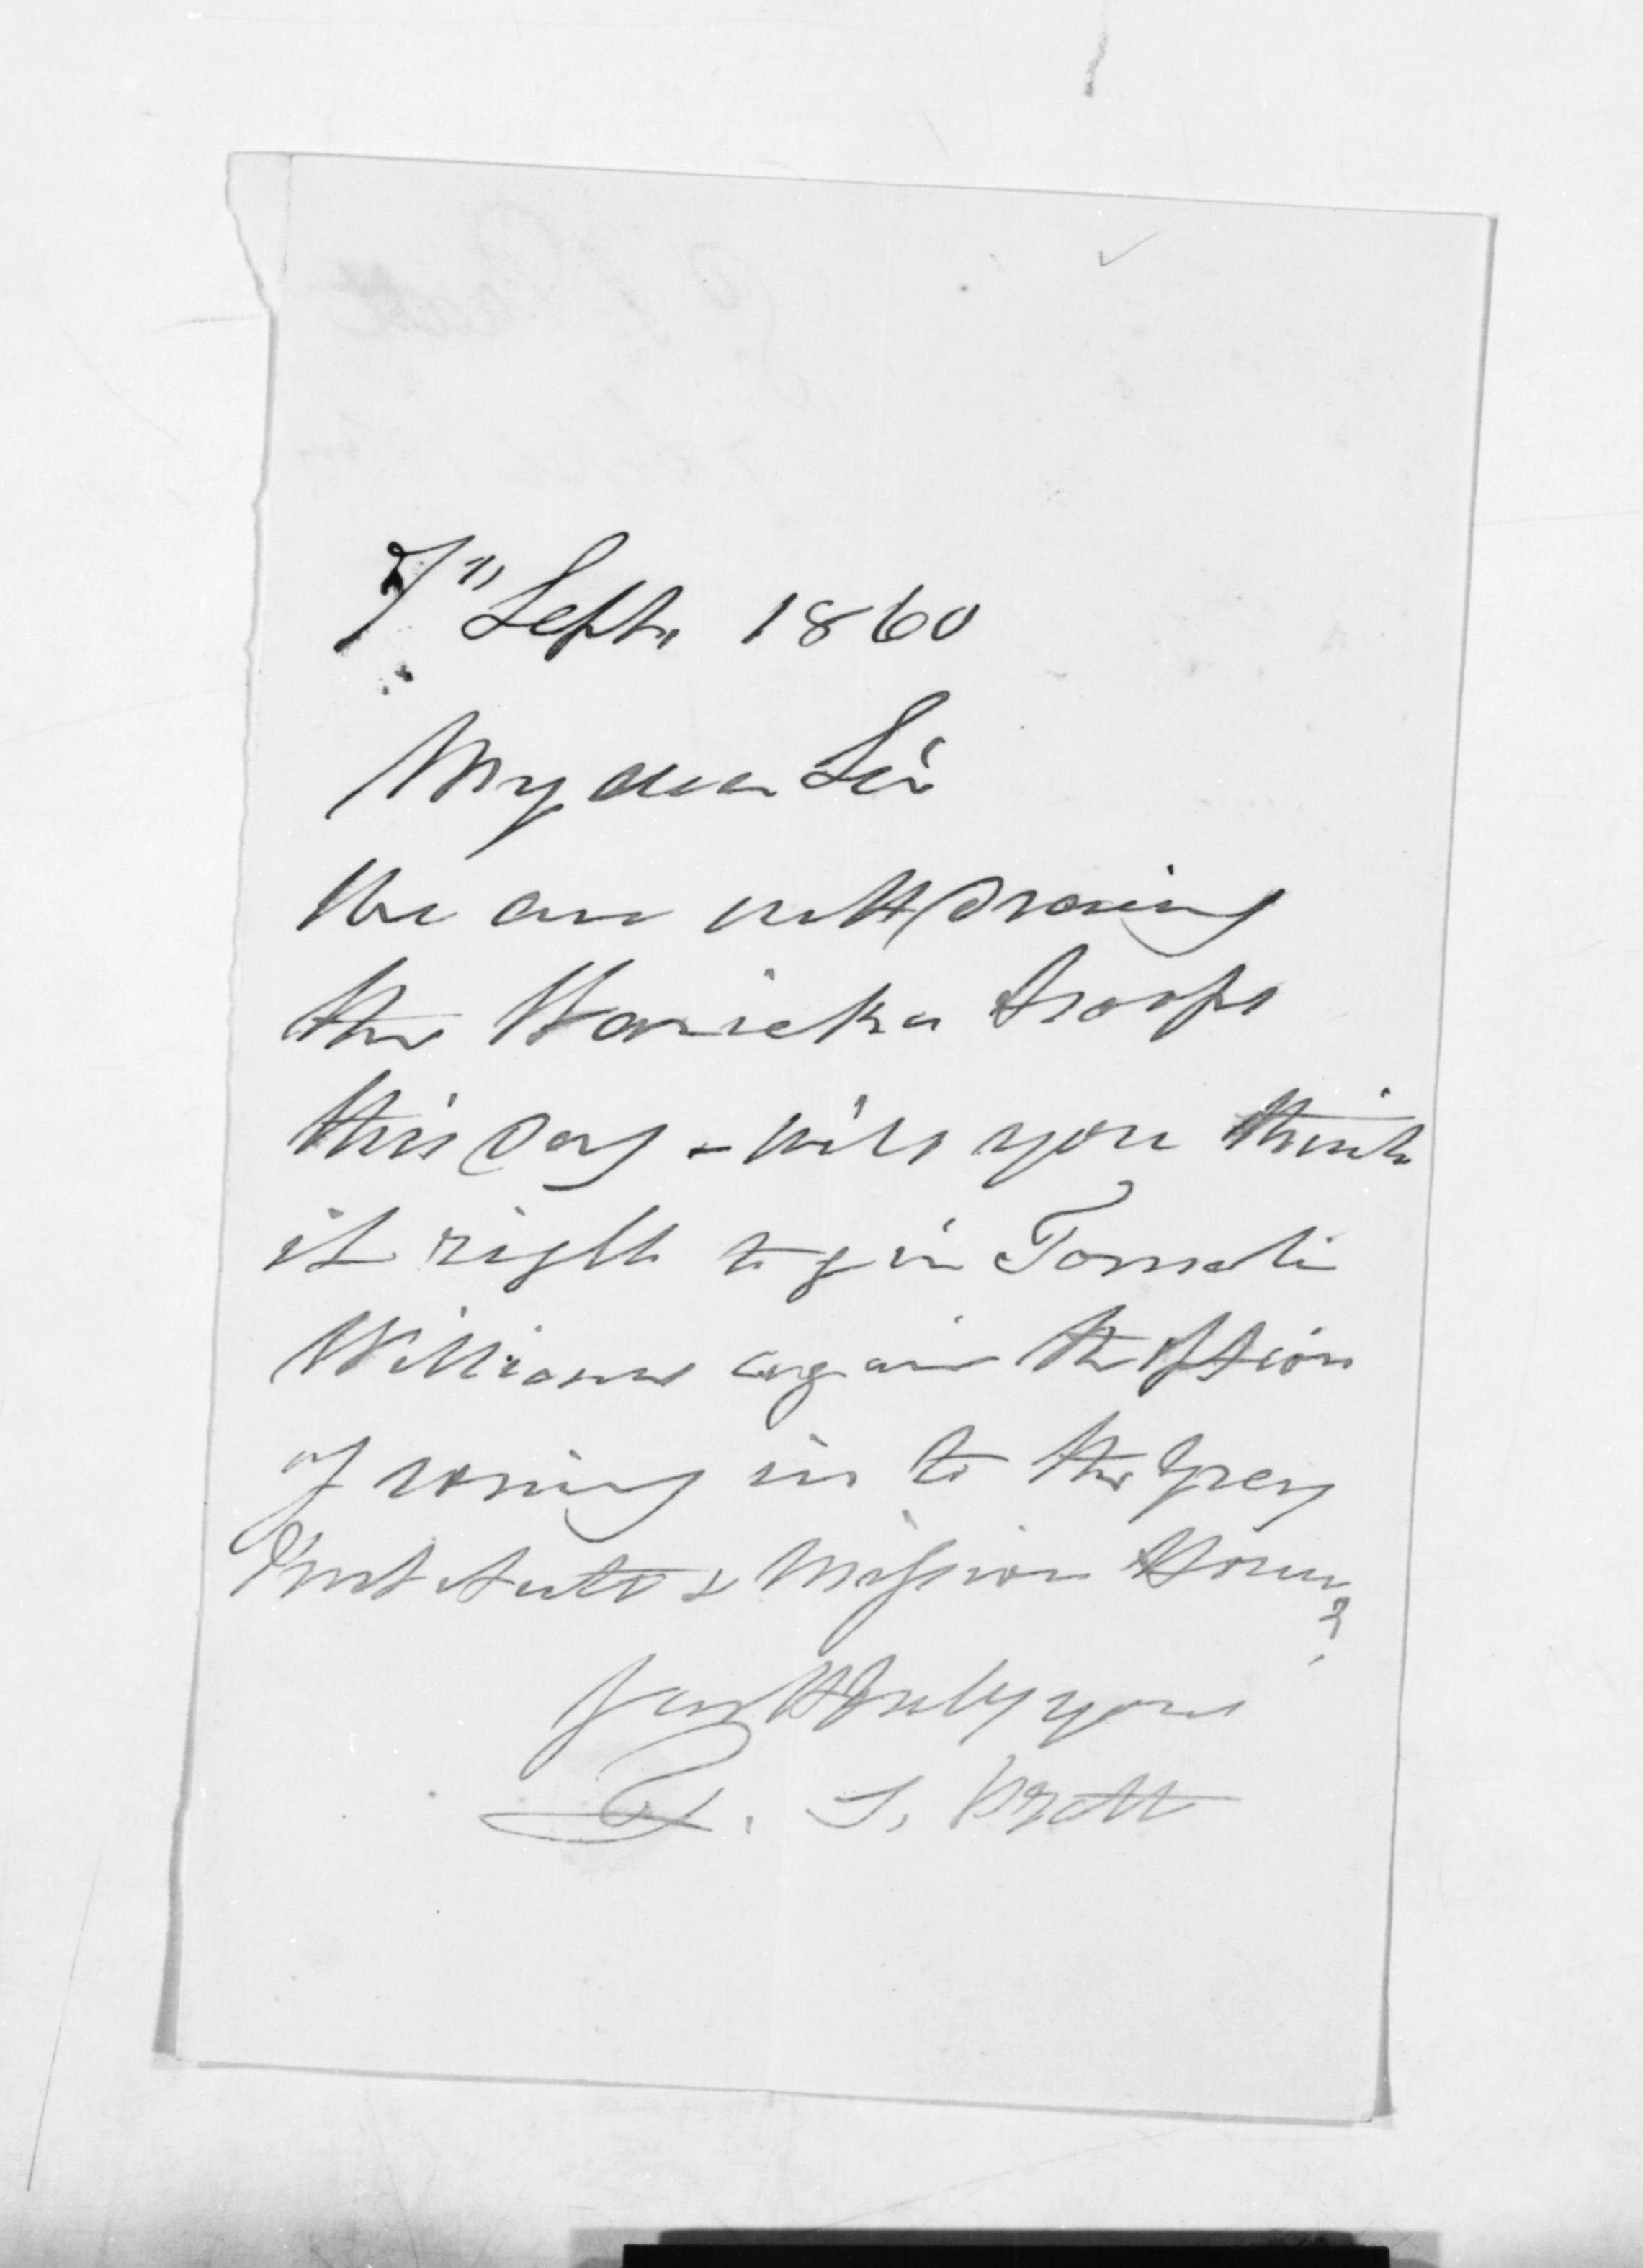 7" Sept. 1860
My dear Sir
We are withdrawing
the Waireka troops
this day - will you think
it right to give Tomati
Williams again the option
of coming in to the Grey
Institute & Mission House?
faithfully yours
T. S. Pratt